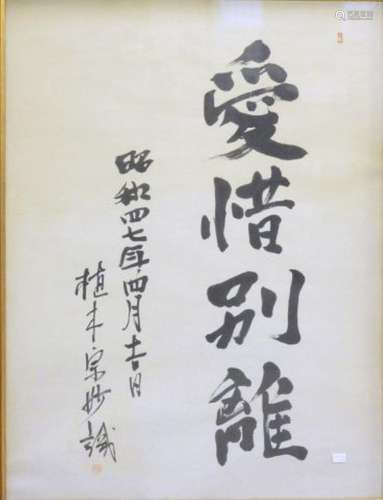 愛惜別離
昭和四七年四月吉日
植木宗妙識